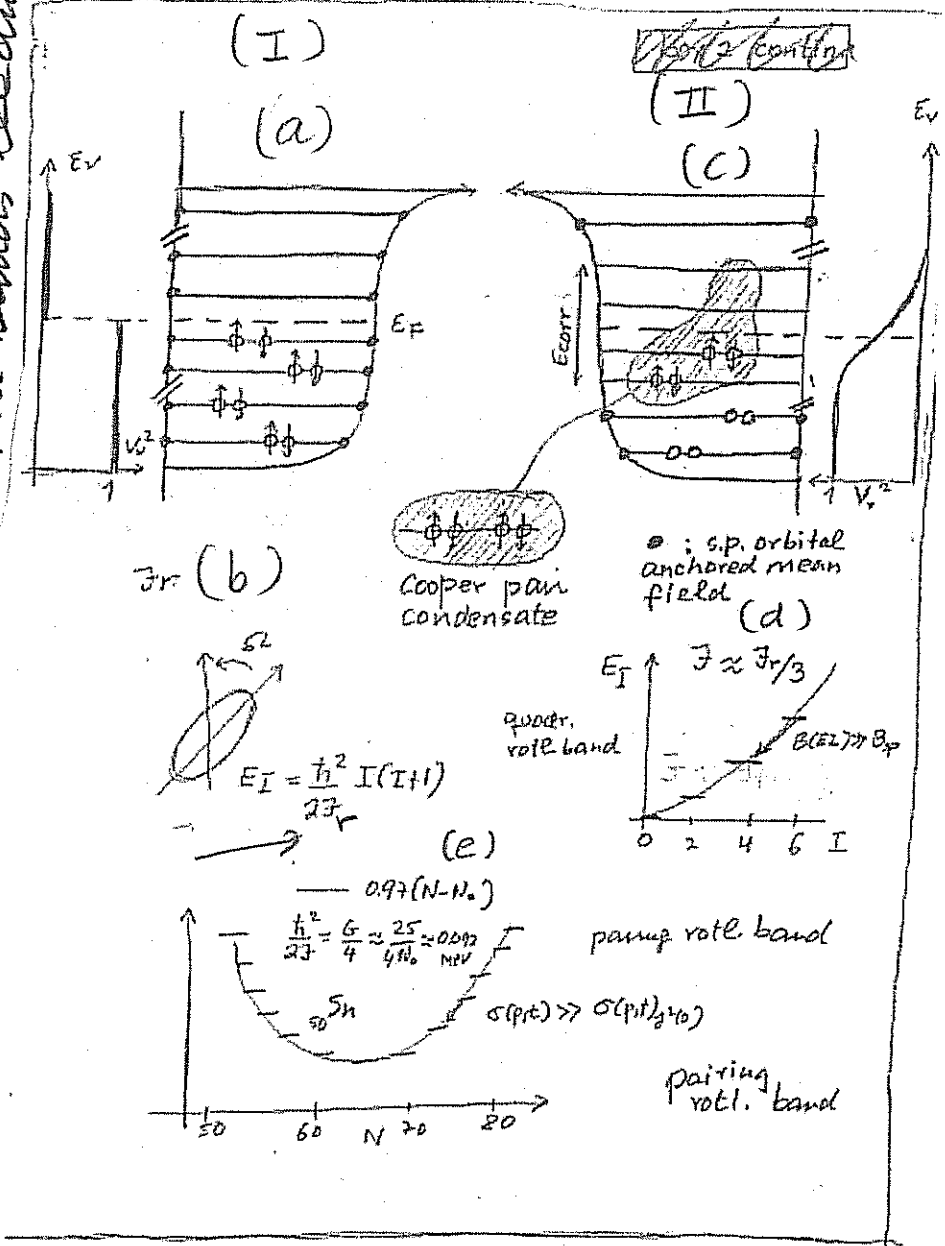 (I)
(II)
(a)
(c)
Eν
EF
Vν²
1
Ecorr
Eν
1 Vν²
Cooper pair
condensate
● : s.p. orbital
anchored mean
field
ℑr (b)
Ω
E_I = ħ²/2ℑr I(I+1)
(d)
E_I
ℑ ≈ ℑr/3
quadr.
rotl. band
B(E2) ≫ Bsp
0 2 4 6 I
(e)
— 0.97(N-N₀)
ħ²/2ℑ = G/4 ≈ 25/4N₀ ≈ 0.092
MeV
pairing rotl. band
₅₀Sn
σ(p,t) ≫
pairing
rotl. band
50 60 N 70 80